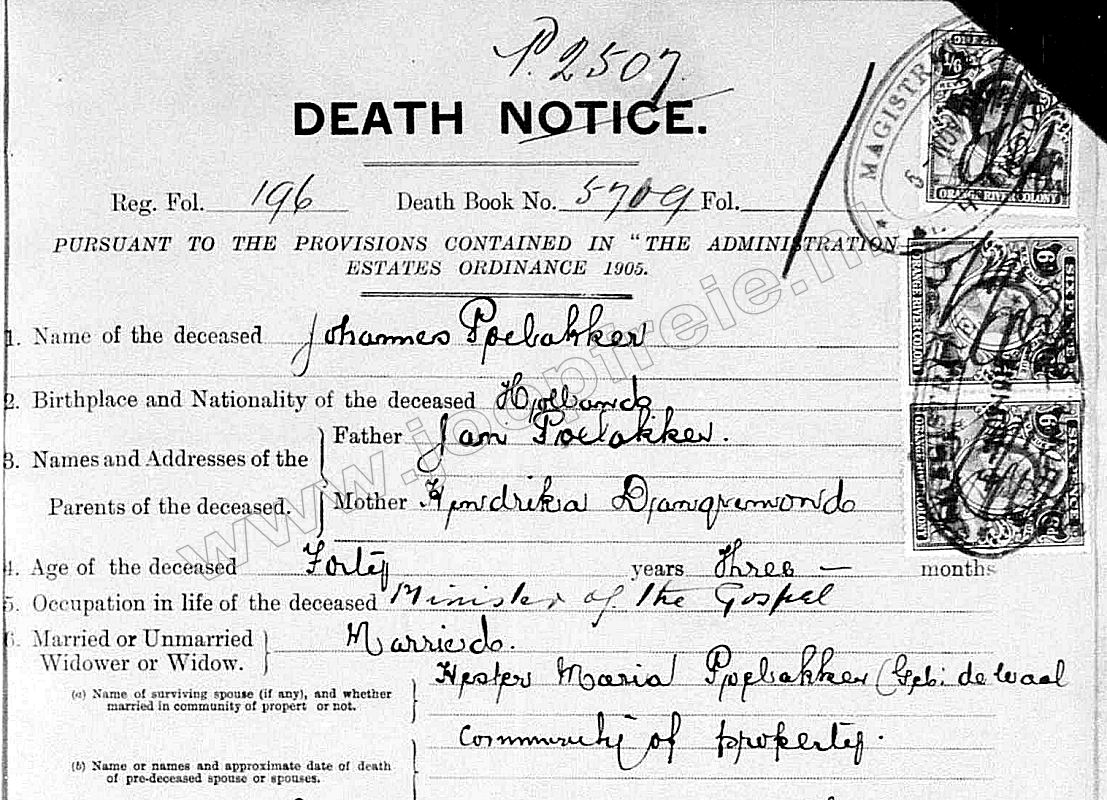 P. 2507.
DEATH NOTICE.
Reg. Fol. 196 Death Book No. 5709 Fol.
PURSUANT TO THE PROVISIONS CONTAINED IN "THE ADMINISTRATION
ESTATES ORDINANCE 1905.
1. Name of the deceased Johannes Poelakker
2. Birthplace and Nationality of the deceased Holland.
3. Names and Addresses of the Parents of the deceased.
Father Jan Poelakker.
Mother Hendrika
4. Age of the deceased Forty years Three — months
5. Occupation in life of the deceased Minister of the Gospel
6. Married or Unmarried Married.
Widower or Widow.
(a) Name of surviving spouse (if any), and whether
married in community of propert or not.
Hester Maria Poelakker (Geb: de Waal
Community of property.
(b) Name or names and approximate date of death
of pre-deceased spouse or spouses.
MAGISTR
ORANGE RIVER COLONY
SIX PENCE
ORANGE RIVER COLONY
SIX PENCE
ORANGE RIVER COLONY
www.joopfireie.nl